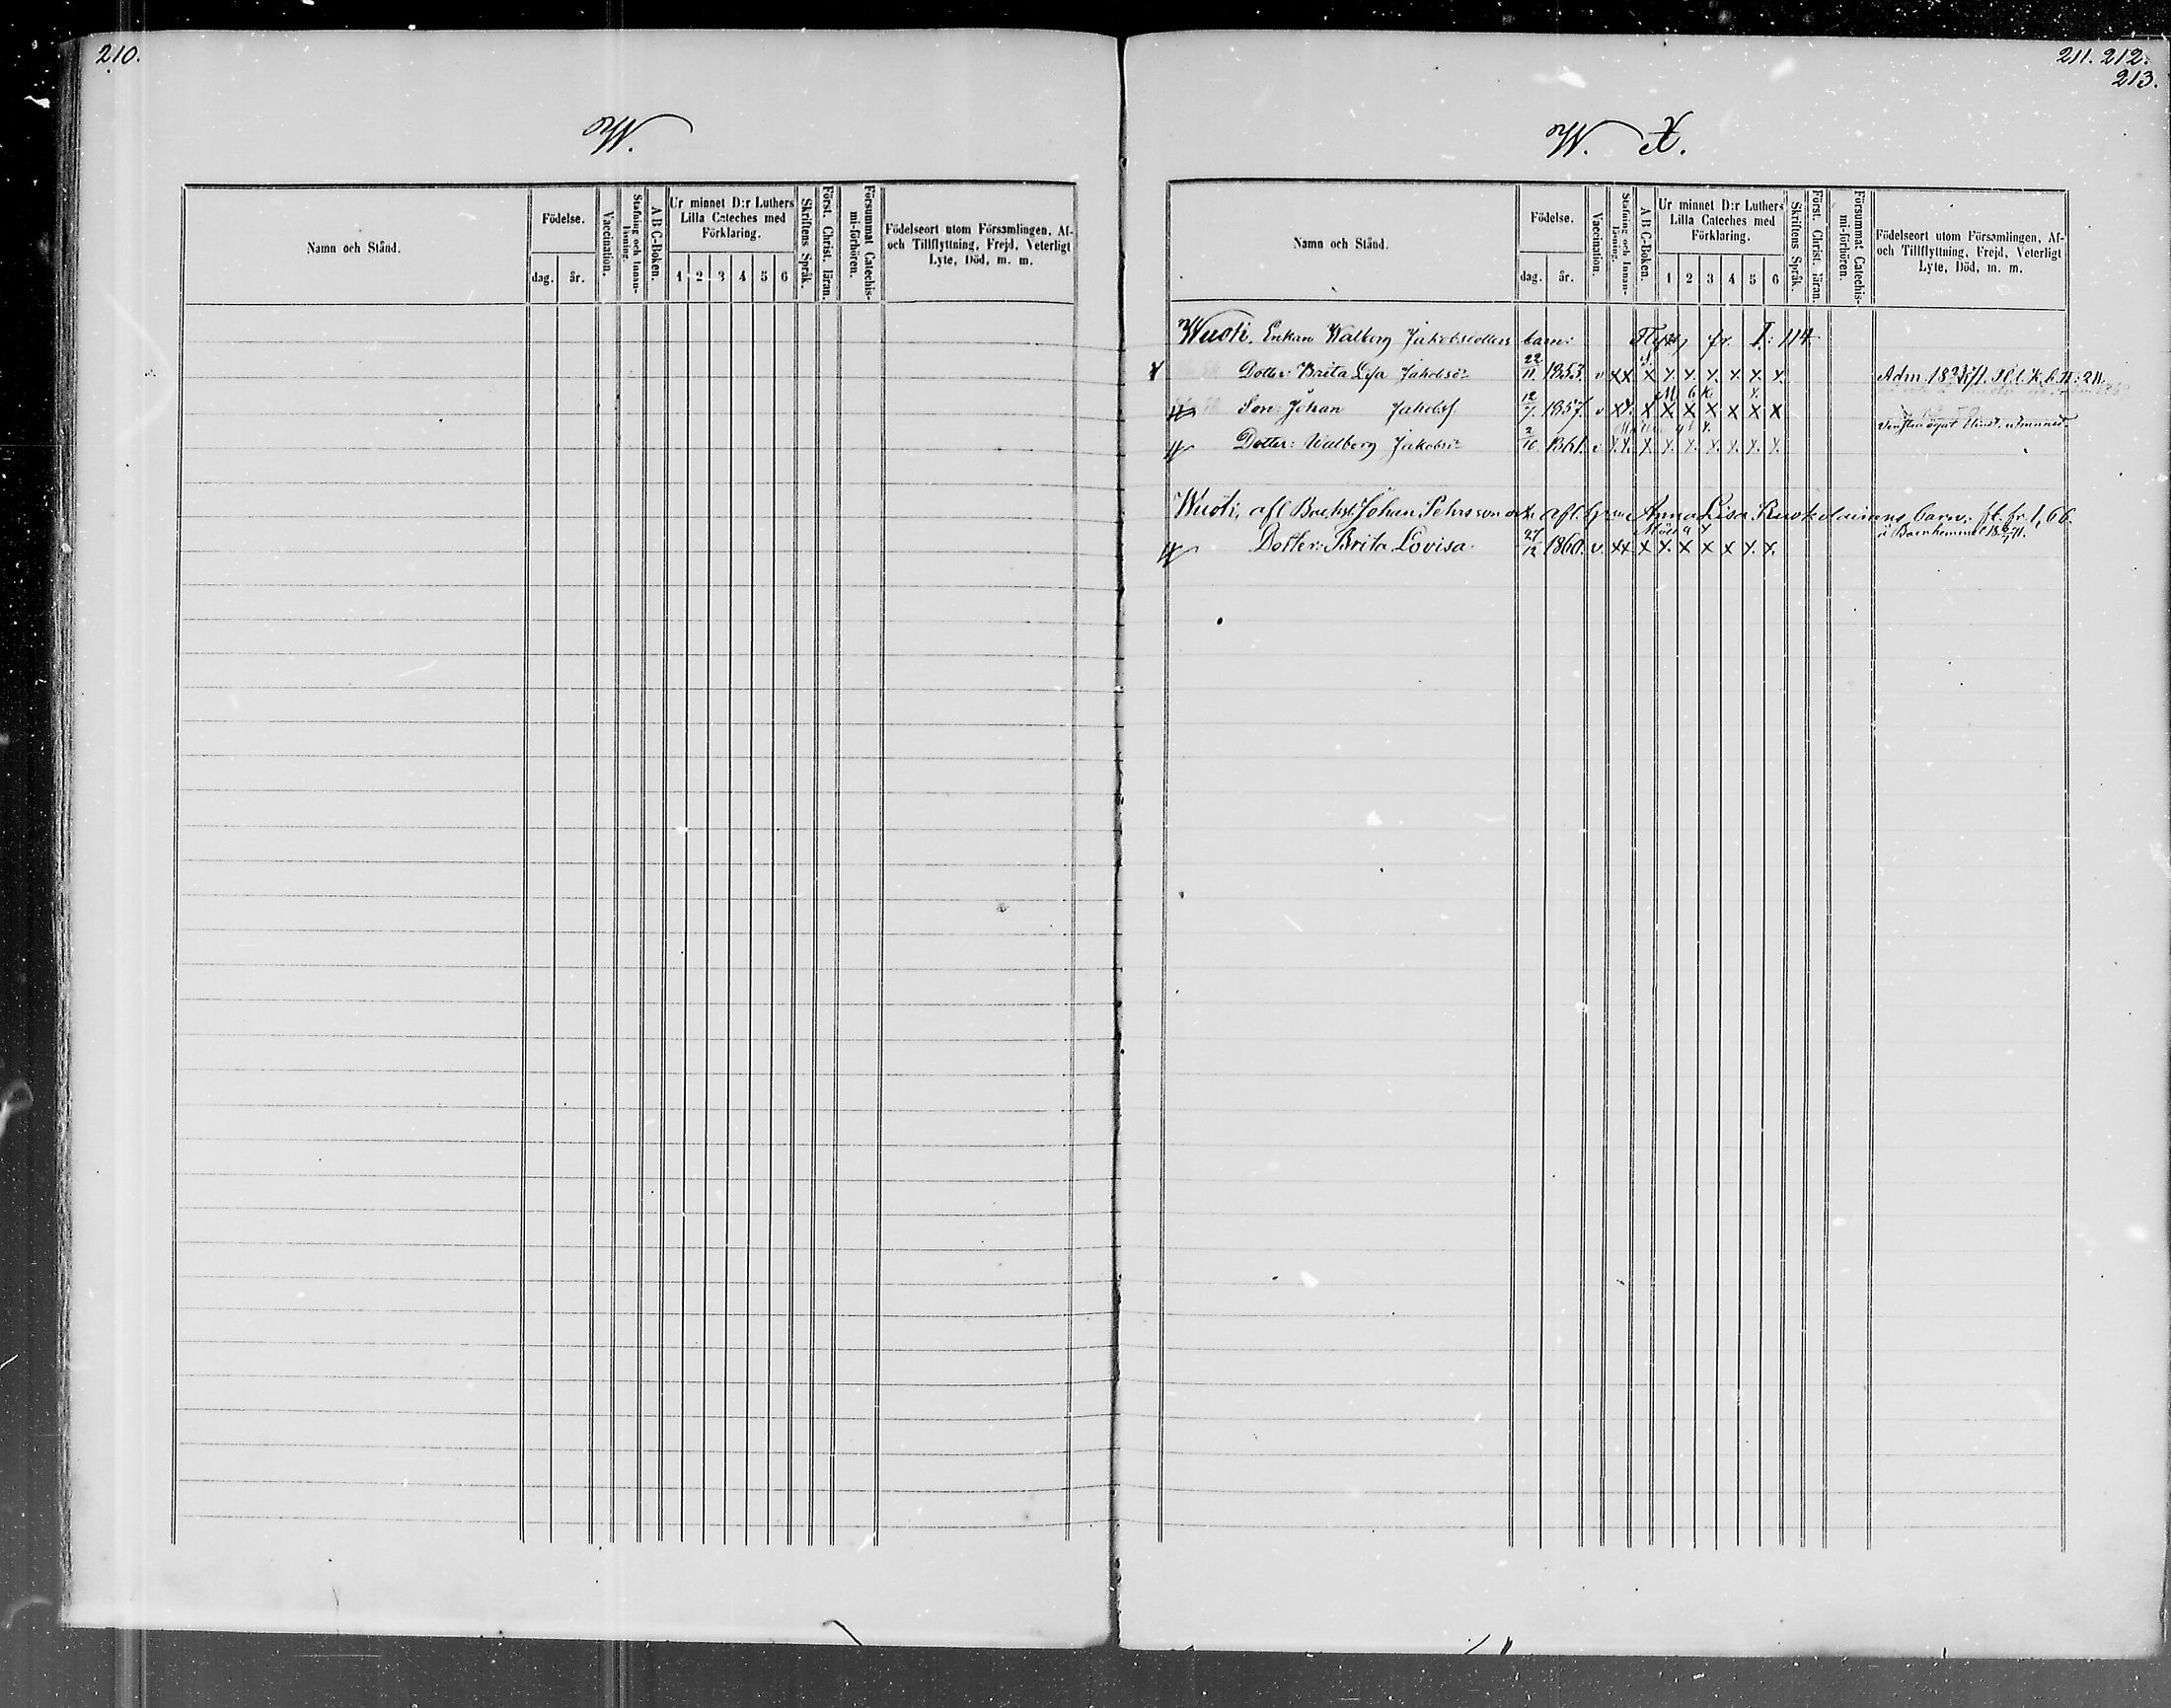 210.
W.
Namn och Stånd.
Födelse.
dag. år.
Vaccination.
Stafning och Innan-
läsning.
A B C-Boken.
Ur minnet D:r Luthers
Lilla Cateches med
Förklaring.
1 2 3 4 5 6
Skriftens Språk.
Först. Christ. läran.
Försummat Catechis-
mi-förhören.
Födelseort utom Församlingen, Af-
och Tillflyttning, Frejd, Veterligt
Lyte, Död, m. m.
211. 212.
213.
W. X.
Namn och Stånd.
Födelse.
dag. år.
Vaccination.
Stafning och Innan-
läsning.
A B C-Boken.
Ur minnet D:r Luthers
Lilla Cateches med
Förklaring.
1 2 3 4 5 6
Skriftens Språk.
Först. Christ. läran.
Försummat Catechis-
mi-förhören.
Födelseort utom Församlingen, Af-
och Tillflyttning, Frejd, Veterligt
Lyte, Död, m. m.
Wuoti, Enkan Walborg Jakobsdotters barn: fr. I: 114
Dotter: Brita Lisa Jakobsd:r 22/11 1853. v xx x x x x x x x Adm.
Son: Johan Jakobsf. 12/7 1857. v x x x x x x x
Dotter: Walborg Jakobsd:r 2/10 1861. v x x x x x x x x x
Wuoti, afl. Johan Pehrsson och afl. Anna Lisa barn: fl. fr. 1, 66.
Dotter: Brita Lovisa. 27/12 1860. v xx x x x x x x x